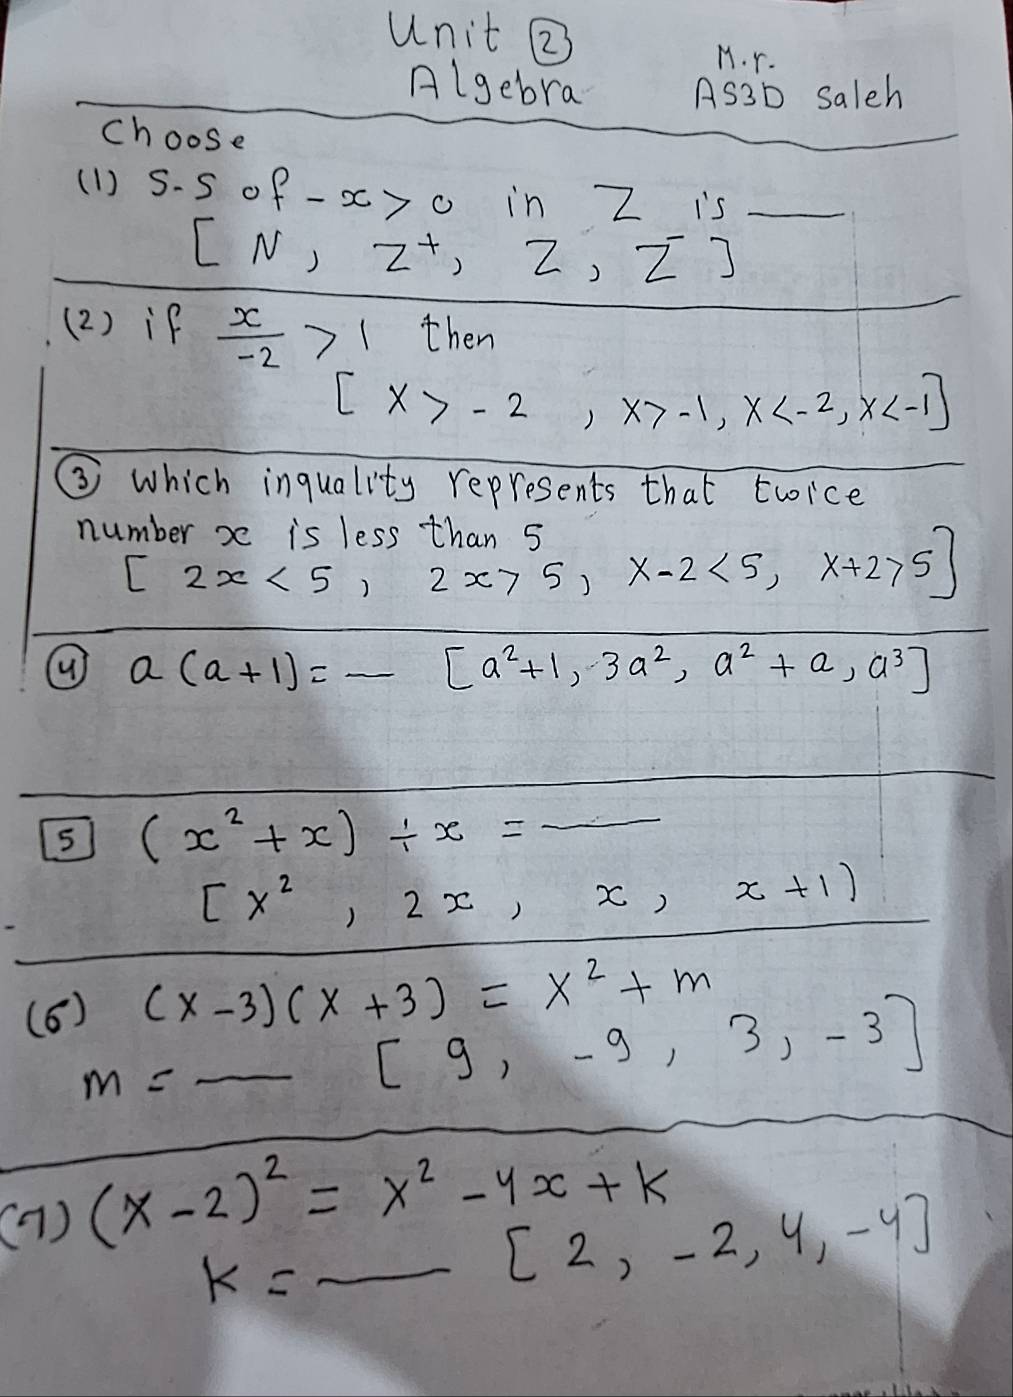 Unit ②
Algebra
M.r.
AS3D Saleh
Choose
(1) S-S of -x > 0 in Z is ——
[ N , Z⁺, Z , Z⁻ ]
(2) if x/-2 > 1 then
[ X > -2 , X > -1, X < -2, X < -1 ]
③ which inquality represents that twice
number x is less than 5
[ 2x < 5 , 2x > 5 , X-2 < 5, X+2 > 5 ]
④ a (a+1) = — [ a²+1, 3a², a² + a, a³ ]
5 (x² + x) ÷ x = ——
[ x² , 2x , x , x +1 )
(6) (X-3)(X+3) = X² + m
m = —— [ 9, -9, 3, -3 ]
(7) (X-2)² = X² -4x + K
K = —— [ 2, -2, 4, -4 ]